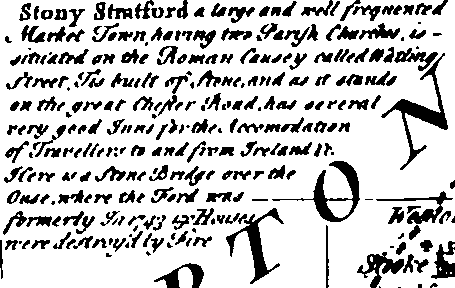 Stony Stratford a large and well frequented
Market Town, having two Parish Churches, is
situated on the Roman Causey called Watling
Street, Tis built of Stone, and as it stands
on the great Chester Road, has several
very good Inns for the Accomodation
of Travellers to and from Ireland &c.
Here is a Stone Bridge over the
Ouse, where the Ford was
formerly In 1743 Houses
were destroy'd by Fire
PTON
Stoke